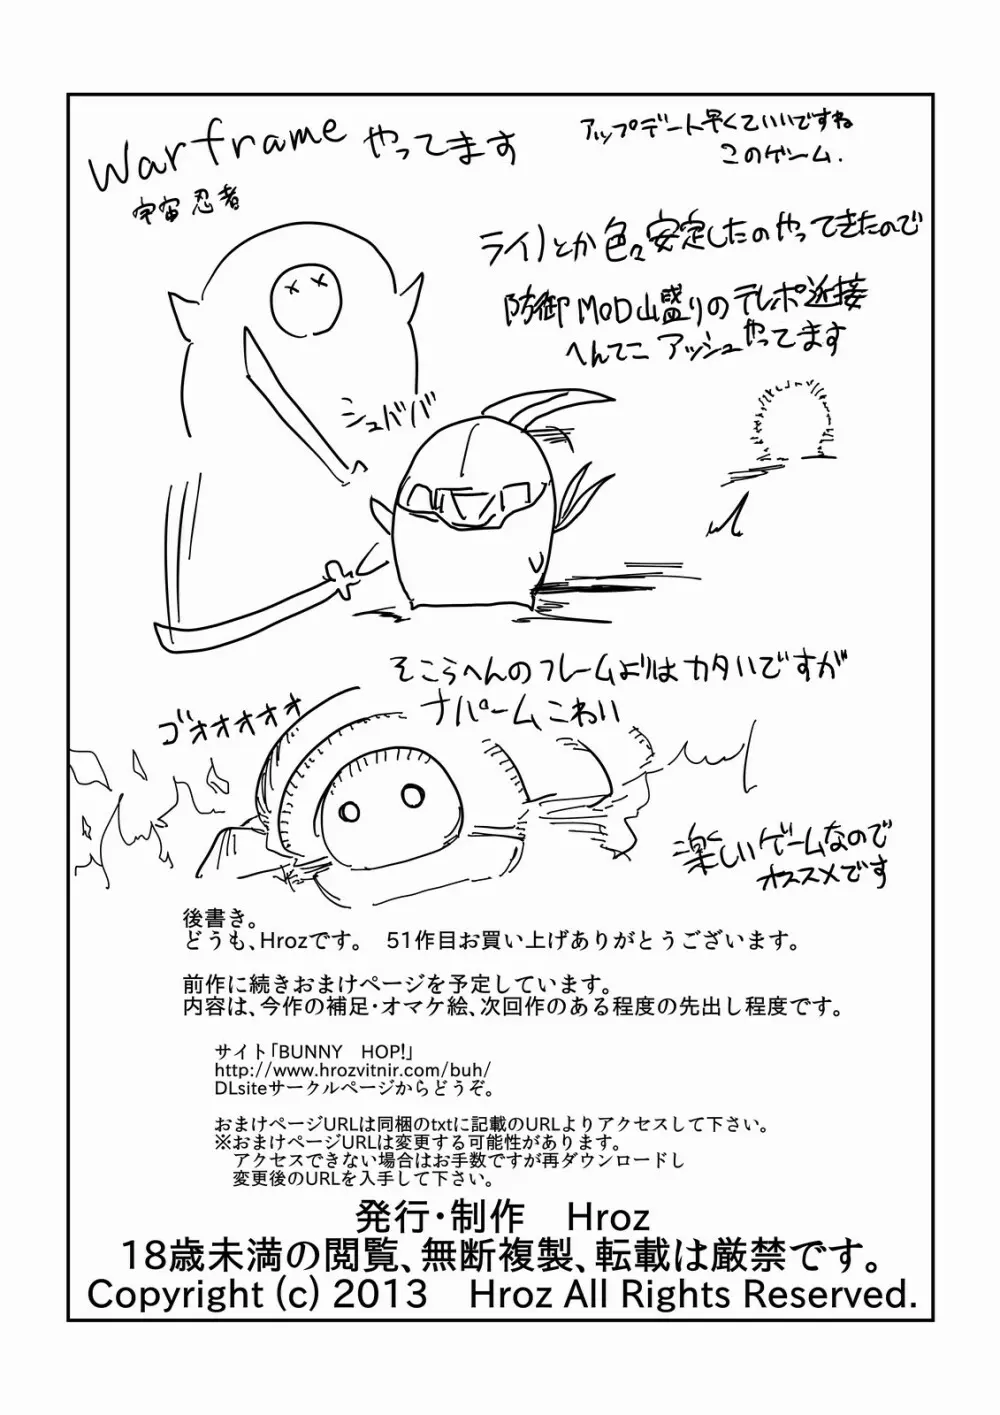 Warframe やってます
宇宙忍者
アップデート早くていいですね
このゲーム.
ライノとか色々安定したのやってきたので
防御MOD山盛りのテレポ近接
へんてこ アッシュやってます
シュババ
そこらへんのフレームよりはカタいですが
ナパームこわい
ゴオオオオオ
楽しいゲームなので
オススメです
後書き。
どうも、Hrozです。　51作目お買い上げありがとうございます。
前作に続きおまけページを予定しています。
内容は、今作の補足・オマケ絵、次回作のある程度の先出し程度です。
サイト「BUNNY　HOP!」
http://www.hrozvitnir.com/buh/
DLsiteサークルページからどうぞ。
おまけページURLは同梱のtxtに記載のURLよりアクセスして下さい。
※おまけページURLは変更する可能性があります。
アクセスできない場合はお手数ですが再ダウンロードし
変更後のURLを入手して下さい。
発行・制作　Hroz
18歳未満の閲覧、無断複製、転載は厳禁です。
Copyright (c) 2013　Hroz All Rights Reserved.